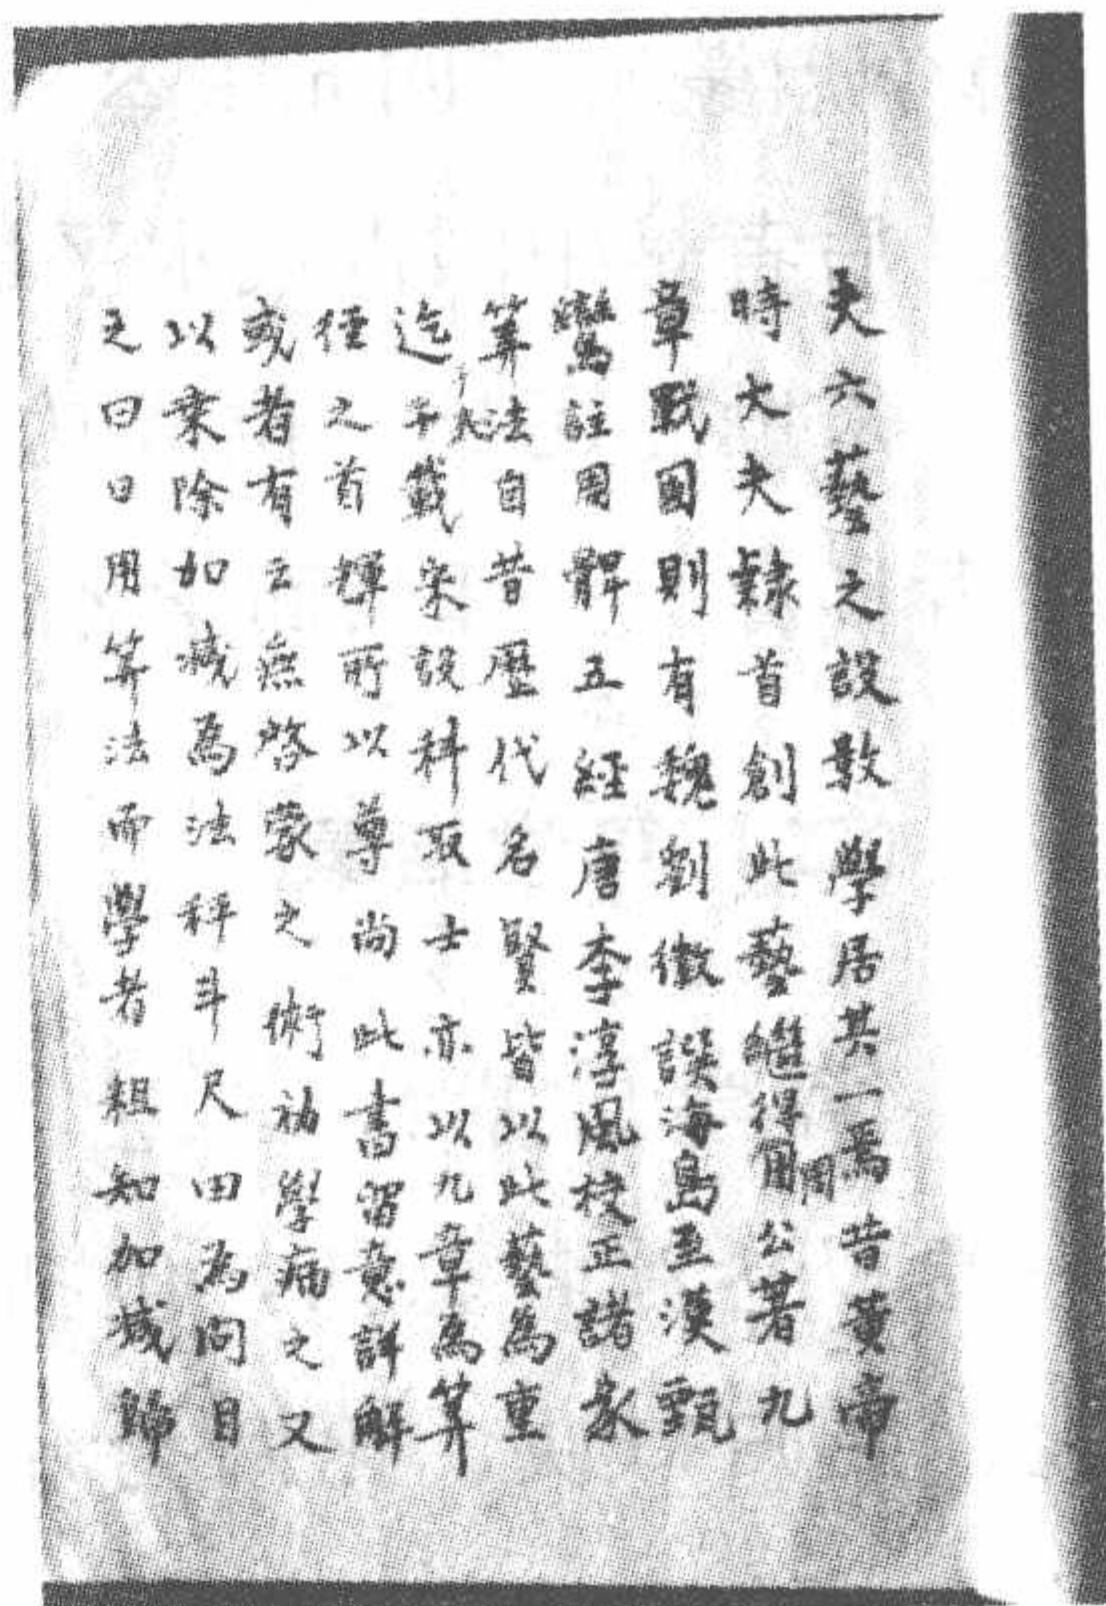 夫六藝之設數學居其一焉昔黃帝
時大夫隸首創此藝繼得周公著九
章戰國則有魏劉徽譔海島至漢甄
鸞註周髀五經唐李淳風校正諸家
算法自昔歷代名賢皆以此藝為重
迄于大宋設科取士亦以九章為算
經之首輝所以尊尚此書留意詳解
或者有云無啓蒙之術初學病之又
以乘除加減為法秤斗尺田為問目
之曰日用算法而學者粗知加減歸